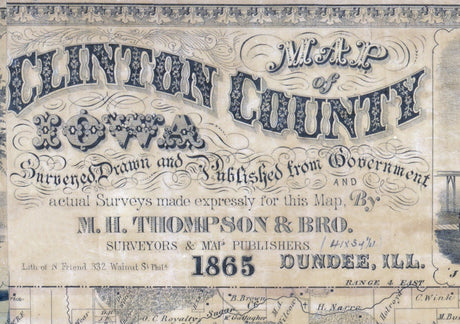 MAP
of
CLINTON COUNTY
IOWA
Surveyed, Drawn and Published from Government
AND
actual Surveys made expressly for this Map, By
M. H. THOMPSON & BRO.
SURVEYORS & MAP PUBLISHERS
1865 DUNDEE, ILL.
Lith. of N Friend 332 Walnut St Phila
RANGE 4 EAST
B. Brown
C. Wink
O. C. Royalty
Sugar
Cr.
K. Gallagher
H. Narre